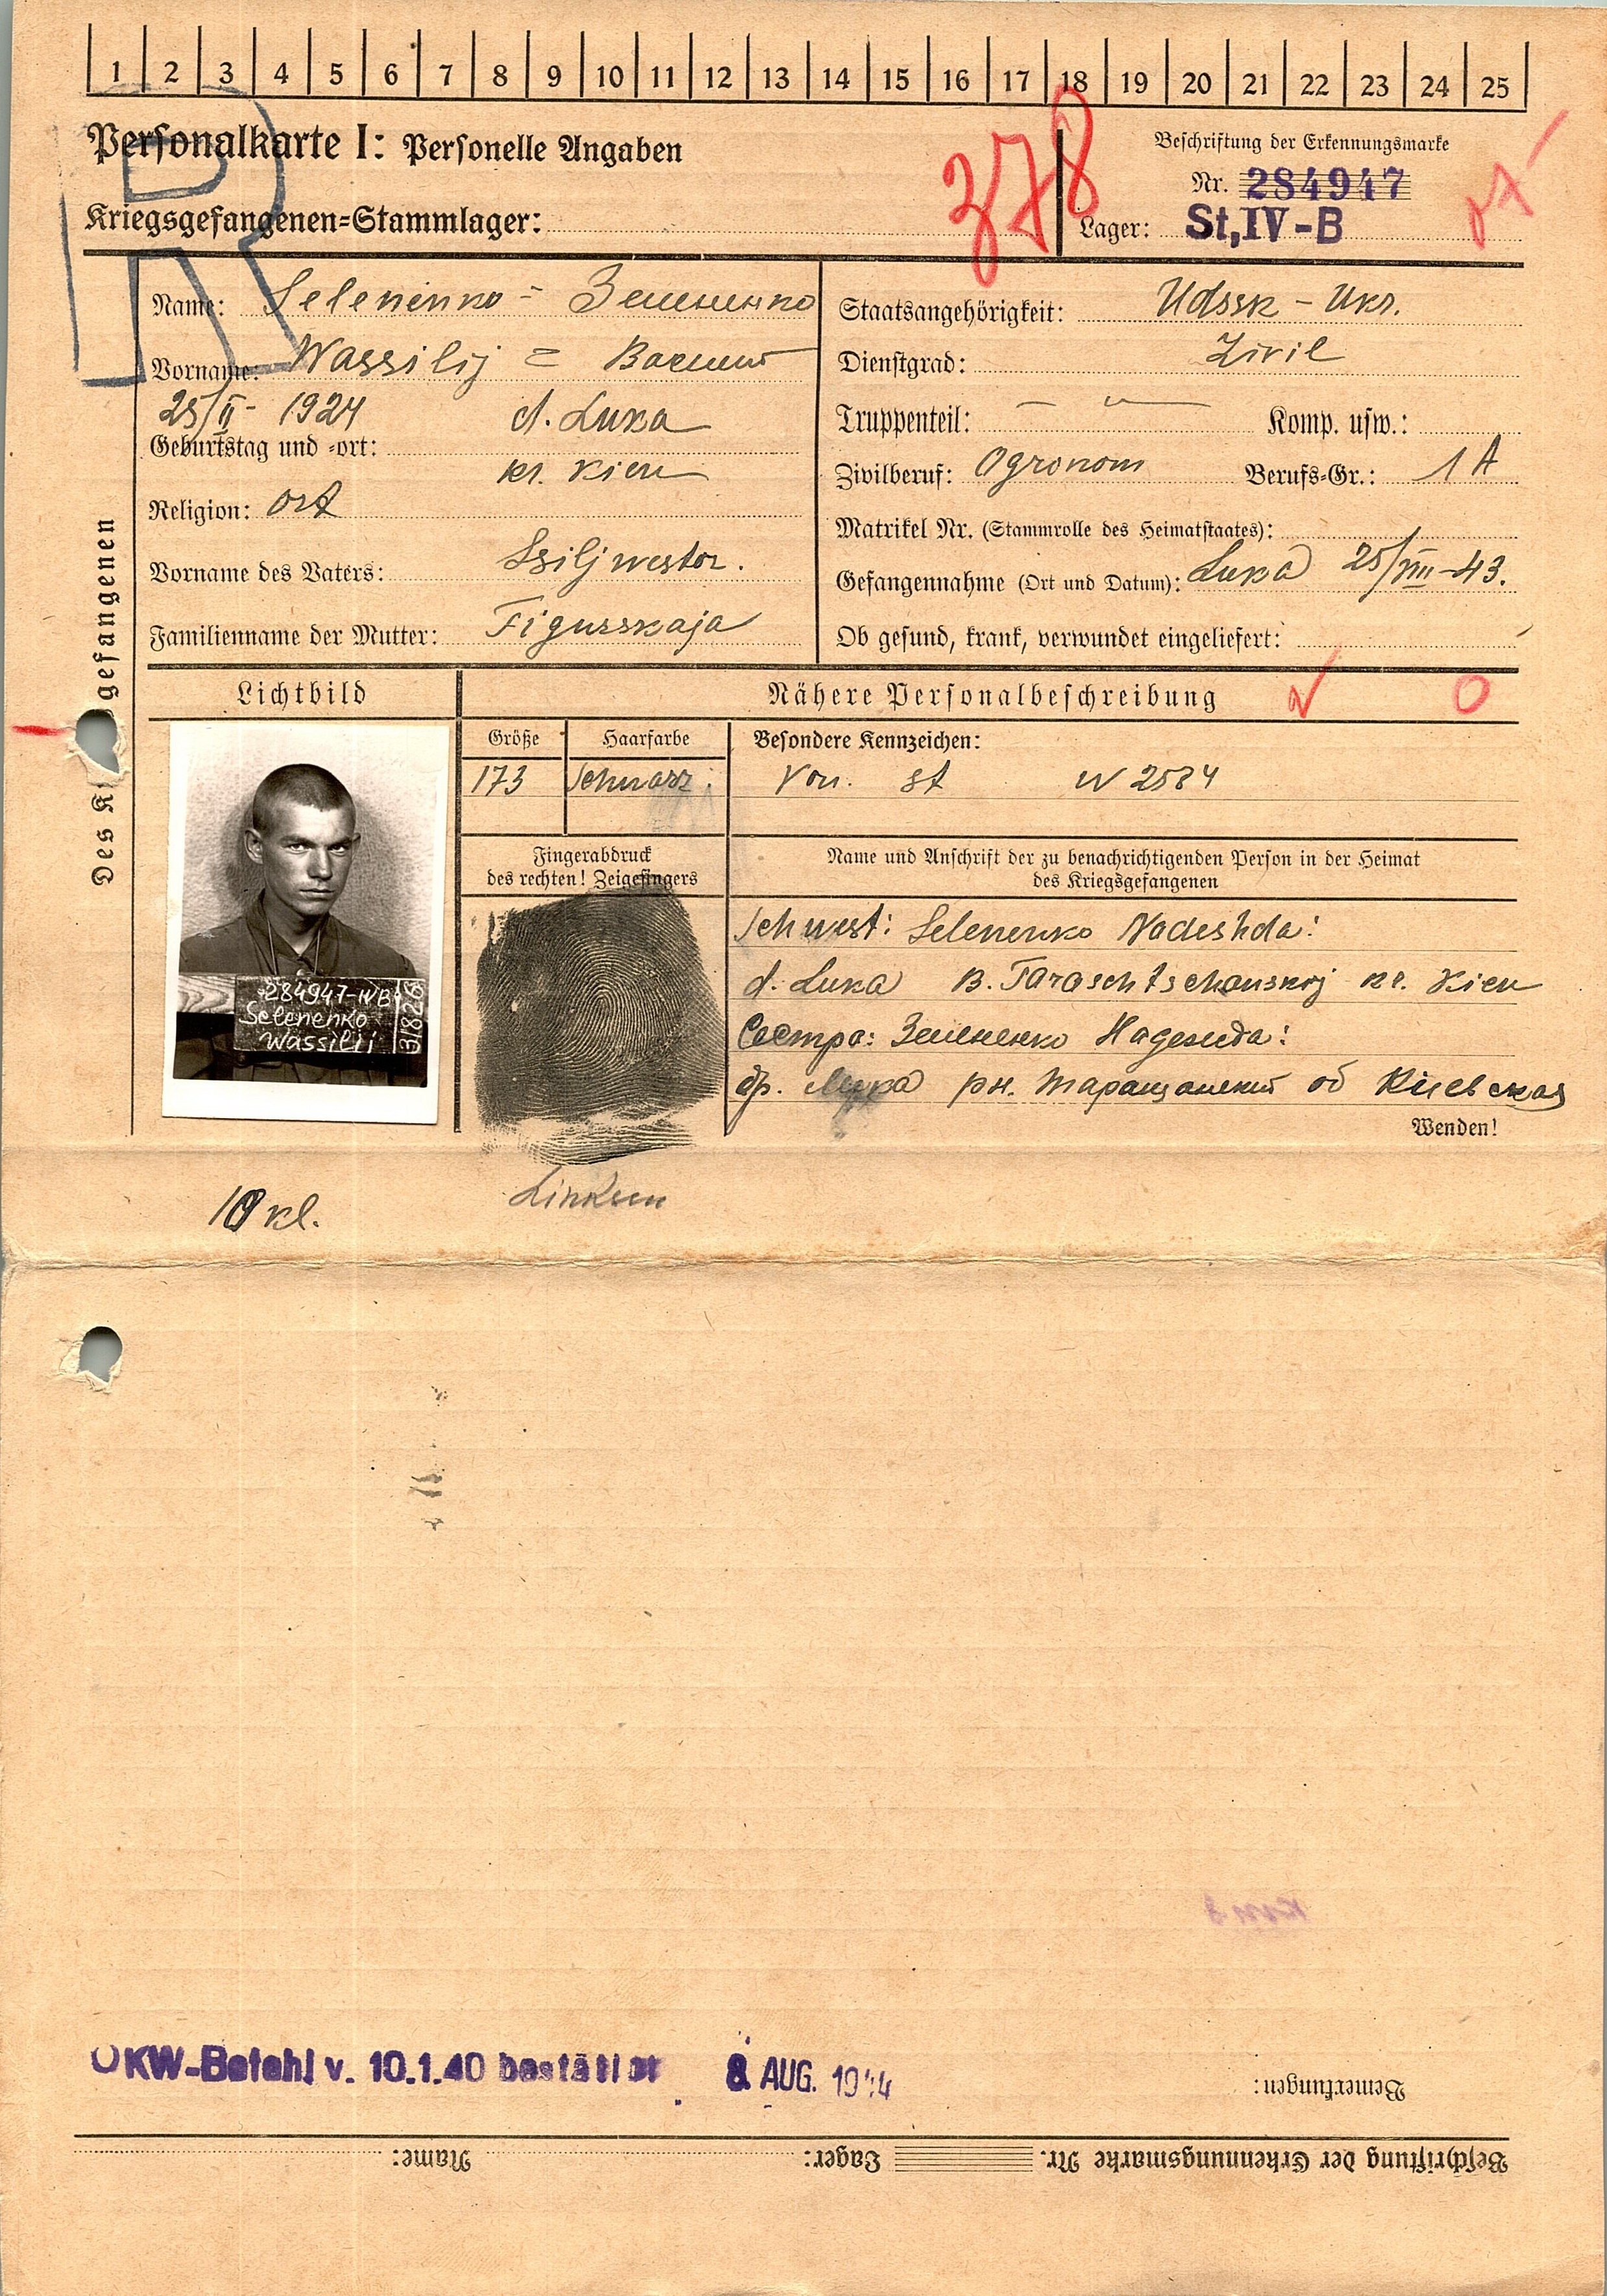 1 2 3 4 5 6 7 8 9 10 11 12 13 14 15 16 17 18 19 20 21 22 23 24 25
Personalkarte I: Personelle Angaben
378
Beschriftung der Erkennungsmarke
Nr. 284947
Kriegsgefangenen-Stammlager:
Lager: St,IV-B
Name: Selenenko - Зелененко
Vorname: Wassilij = Василий
25/II- 1924 d. Luka
Geburtstag und -ort:
kr. Kiew
Religion: ort
Vorname des Vaters: Ssiljwestor.
Familienname der Mutter: Figurskaja
Staatsangehörigkeit: UdSSR - Ukr.
Dienstgrad: Zivil
Truppenteil: Komp. usw.:
Zivilberuf: Ogronom Berufs-Gr.: 1 A
Matrikel Nr. (Stammrolle des Heimatstaates):
Gefangennahme (Ort und Datum): Luka 25/VIII-43.
Ob gesund, krank, verwundet eingeliefert:
Des K gefangenen
Lichtbild
Nähere Personalbeschreibung
Größe Haarfarbe Besondere Kennzeichen:
173 schwarz. Von. st N 2584
Fingerabdruck
des rechten! Zeigefingers
Name und Anschrift der zu benachrichtigenden Person in der Heimat
des Kriegsgefangenen
Schwest: Selenenko Nadeshda:
d. Luka B. Taraschtschanskij kr. Kiew
Сестра: Зелененко Надежда:
др. Лука рн. Таращанский об Киевская
Wenden!
284947-IVB
Selenenko
Wassilij
31826
10 kl.
Linksm
OKW-Befehl v. 10.1.40 bestätigt 8 AUG. 1944
Bemerkungen:
Beschriftung der Erkennungsmarke Nr. Lager: Name: